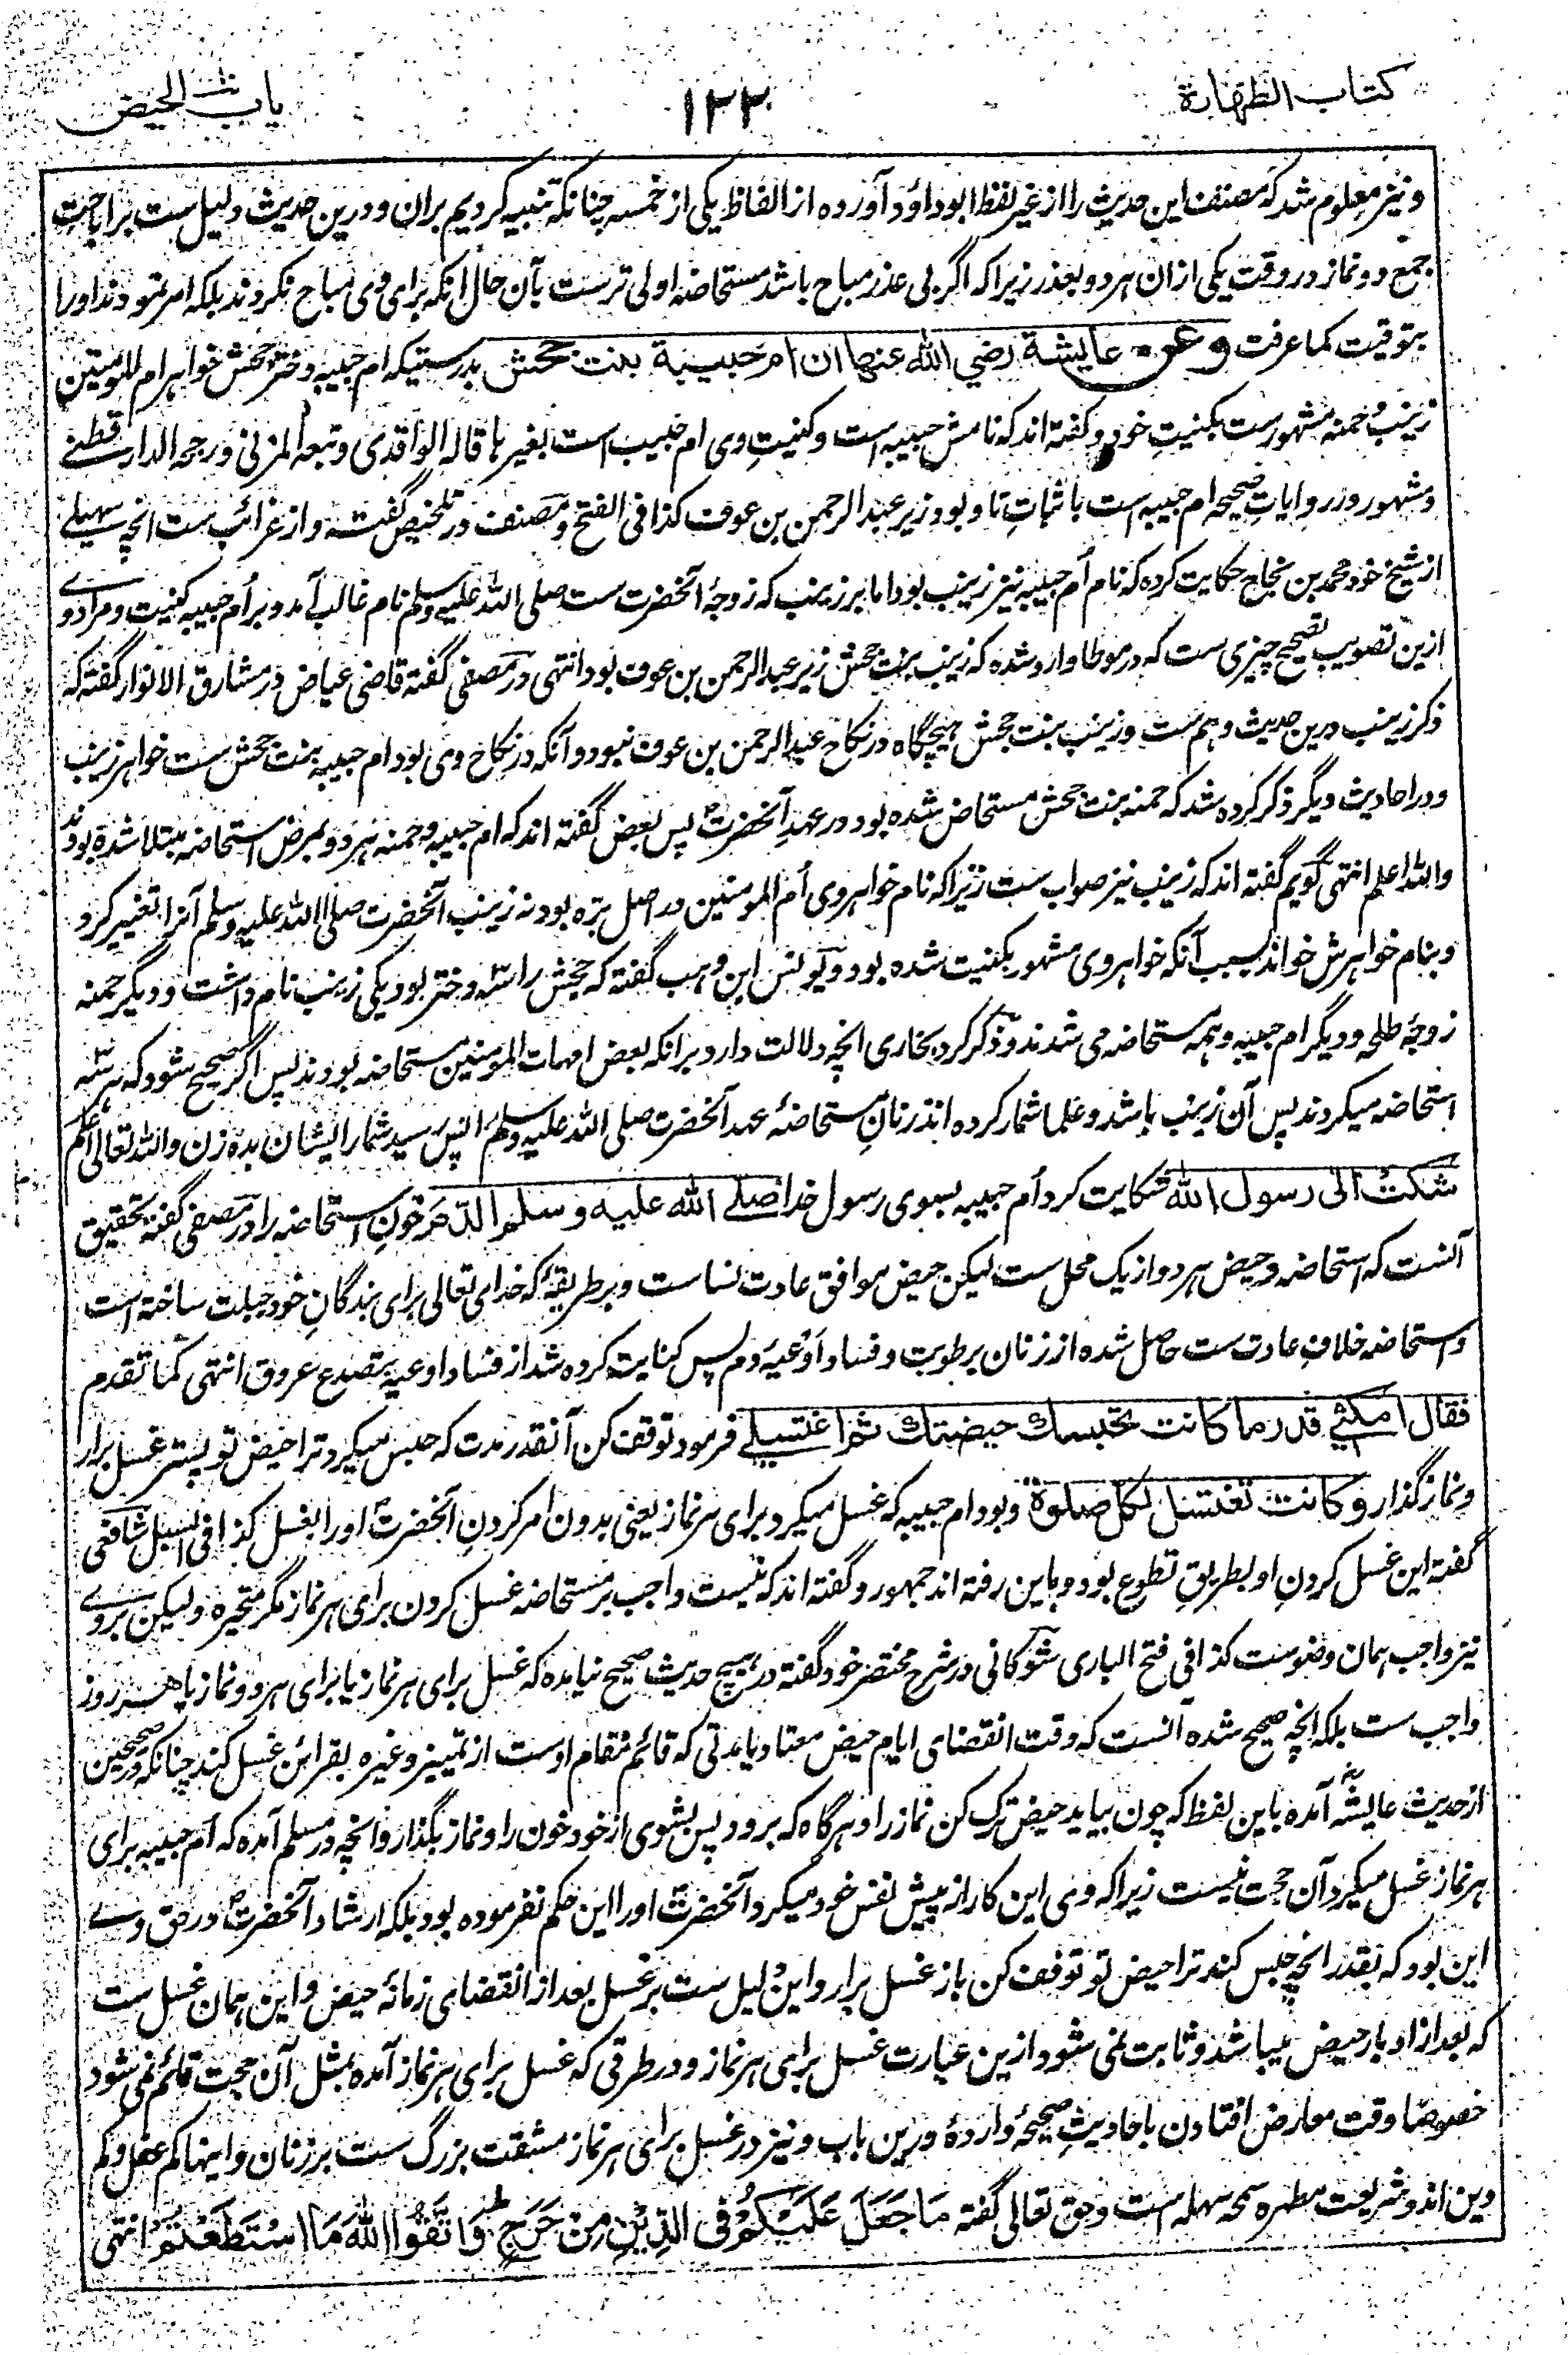 کتاب الطهارة
۱۳۳
باب الحیض
ونیز معلوم شد که مصنف این حدیث را از غیر لفظ ابو داؤد آورده از الفاظ یکی از خمسه چنانکه تنبیه کردیم بران و درین حدیث دلیل ست بر اباحتِ
جمع دو نماز در وقت یکی ازان هر دو بعذر زیرا که اگر بی عذر مباح باشد مستحاضه اولی ترست بآن حال آنکه برای وی مباح نکردند بلکه امر نمودند او را
بتوقیت کما عرفت وعن عایشة رضي الله عنها ان ام حبیبة بنت جحش بدرستیکه ام حبیبه دختر جحش خواهر ام المومنین
زینبُ حمنه مشهورست بکنیتِ خود و گفته اند که نامش حبیبه است و کنیتِ وی ام حبیب است بغیر ها قاله الواقدی و تبعه المزنی و رجحه الدارقطنے
و مشهور در روایاتِ صحیحه ام حبیبه است باثباتِ تا و بود زیر عبد الرحمن بن عوف کذا فی الفتح و مصنف در تلخیص گفته و از غرائب ست انچه سهیلے
از شیخ خود محمد بن نجاح حکایت کرده که نام اُم حبیبه نیز زینب بود اما بر زینب که زوجهٔ آنحضرت ست صلی الله علیه وسلم نام غالب آمد و بر اُم حبیبه کنیت و مراد وے
ازین تصویب تصحیح چیزی ست که در موطا وارد شده که زینب بنت جحش زیر عبد الرحمن بن عوف بود انتهی در مصفی گفته قاضی عیاض در مشارق الانوار گفته که
ذکر زینب درین حدیث وهم ست و زینب بنت جحش هیچگاه در نکاح عبد الرحمن بن عوف نبود و آنکه در نکاح وی بود ام حبیبه بنت جحش ست خواهر زینب
و در احادیث دیگر ذکر کرده شد که حمنه بنت جحش مستحاض شده بود در عهدِ آنحضرتؐ پس بعض گفته اند که ام حبیبه و حمنه هر دو بمرض استحاضه مبتلا شده بودند
والله اعلم انتهی گویم گفته اند که زینب نیز صواب ست زیرا که نام خواهر وی اُم المومنین در اصل بره بود نه زینب آنحضرت صلی الله علیه وسلم آنرا تغییر کرد
و بنام خواهرش خواند بسبب آنکه خواهر وی مشهور بکنیت شده بود و یونس ابن وهب گفته که جحش را سه دختر بود یکی زینب نام داشت و دیگر حمنه
زوجهٔ طلحه و دیگر ام حبیبه و همه مستحاضه می شدند و ذکر کرد بخاری انچه دلالت دارد برانکه بعض امهات المومنین مستحاضه بودند پس اگر صحیح شود که هر سه
استحاضه میکردند پس آن زینب باشد و علما شمار کرده اند زنانِ مستحاضهٔ عهدِ آنحضرت صلی الله علیه وسلم را پس رسید شمار ایشان بده زن والله تعالی اعلم
شکت الی رسول الله شکایت کرد اُم حبیبه بسوی رسول خدا صلے الله علیه وسلم الدم خونِ استحاضه را در مصفی گفته تحقیق
آنست که استحاضه و حیض هر دو از یک محل ست لیکن حیض موافق عادت نساست و بر طریقهٔ که خدای تعالی برای بندگانِ خود جبلت ساخته است
و استحاضه خلافِ عادت ست حاصل شده از زنان برطوبت و فساد اَوْعیه دم پس کنایت کرده شد از فساد اوعیه بتصدع عروق انتهی کما تقدم
فقال امکثي قدر ما کانت تحبسك حیضتك ثم اغتسلے فرمود توقف کن آنقدر مدت که حبس میکرد ترا حیض تو پستر غسل برار
و نماز گذار وکانت تغتسل لکل صلوة و بود ام حبیبه که غسل میکرد برای هر نماز یعنی بدون امر کردنِ آنحضرتؐ اورا بغسل کذا فی السبل شافعی
گفته این غسل کردنِ او بطریقِ تطوع بود و باین رفته اند جمهور و گفته اند که نیست واجب بر مستحاضه غسل کردن برای هر نماز مگر متحیره و لیکن بروے
نیز واجب همان وضوست کذا فی فتح الباری شوکانی در شرح مختصر خود گفته در هیچ حدیث صحیح نیامده که غسل برای هر نماز یا برای هر دو نماز یا هر روز
واجب ست بلکه انچه صحیح شده آنست که وقت انقضای ایام حیض معتاد یا مدتی که قائم مقام اوست از تمییز و غیره بقرائن غسل کند چنانکه در صحیحین
از حدیث عایشهؓ آمده باین لفظ که چون بیاید حیض ترک کن نماز را و هرگاه که برود پس بشوی از خود خون را و نماز بگذار و انچه در مسلم آمده که ام حبیبه برای
هر نماز غسل میکرد آن حجت نیست زیرا که وی این کار از پیش نفس خود میکرد آنحضرتؐ اورا این حکم نفرموده بود بلکه ارشاد آنحضرتؐ در حق وے
این بود که بقدر انچه حبس کند ترا حیض تو توقف کن باز غسل برار و این دلیل ست بر غسل بعد از انقضای زمانهٔ حیض و این همان غسل ست
که بعد از ادبار حیض میباشد و ثابت نمی شود ازین عبارت غسل برای هر نماز و در طرقی که غسل برای هر نماز آمده بمثل آن حجت قائم نمی شود
خصوصًا وقت معارض افتادن با حادیثِ صحیحهٔ واردهٔ درین باب و نیز در غسل برای هر نماز مشقت بزرگ ست بر زنان و اینها کم عقل و کم
دین اند و شریعت مطهره سمحه سهله ست و حق تعالی گفته مَا جَعَلَ عَلَیْکُمْ فِی الدِّیْنِ مِنْ حَرَجٍ ط وَاتَّقُوا اللّٰهَ مَا اسْتَطَعْتُمْ انتهی